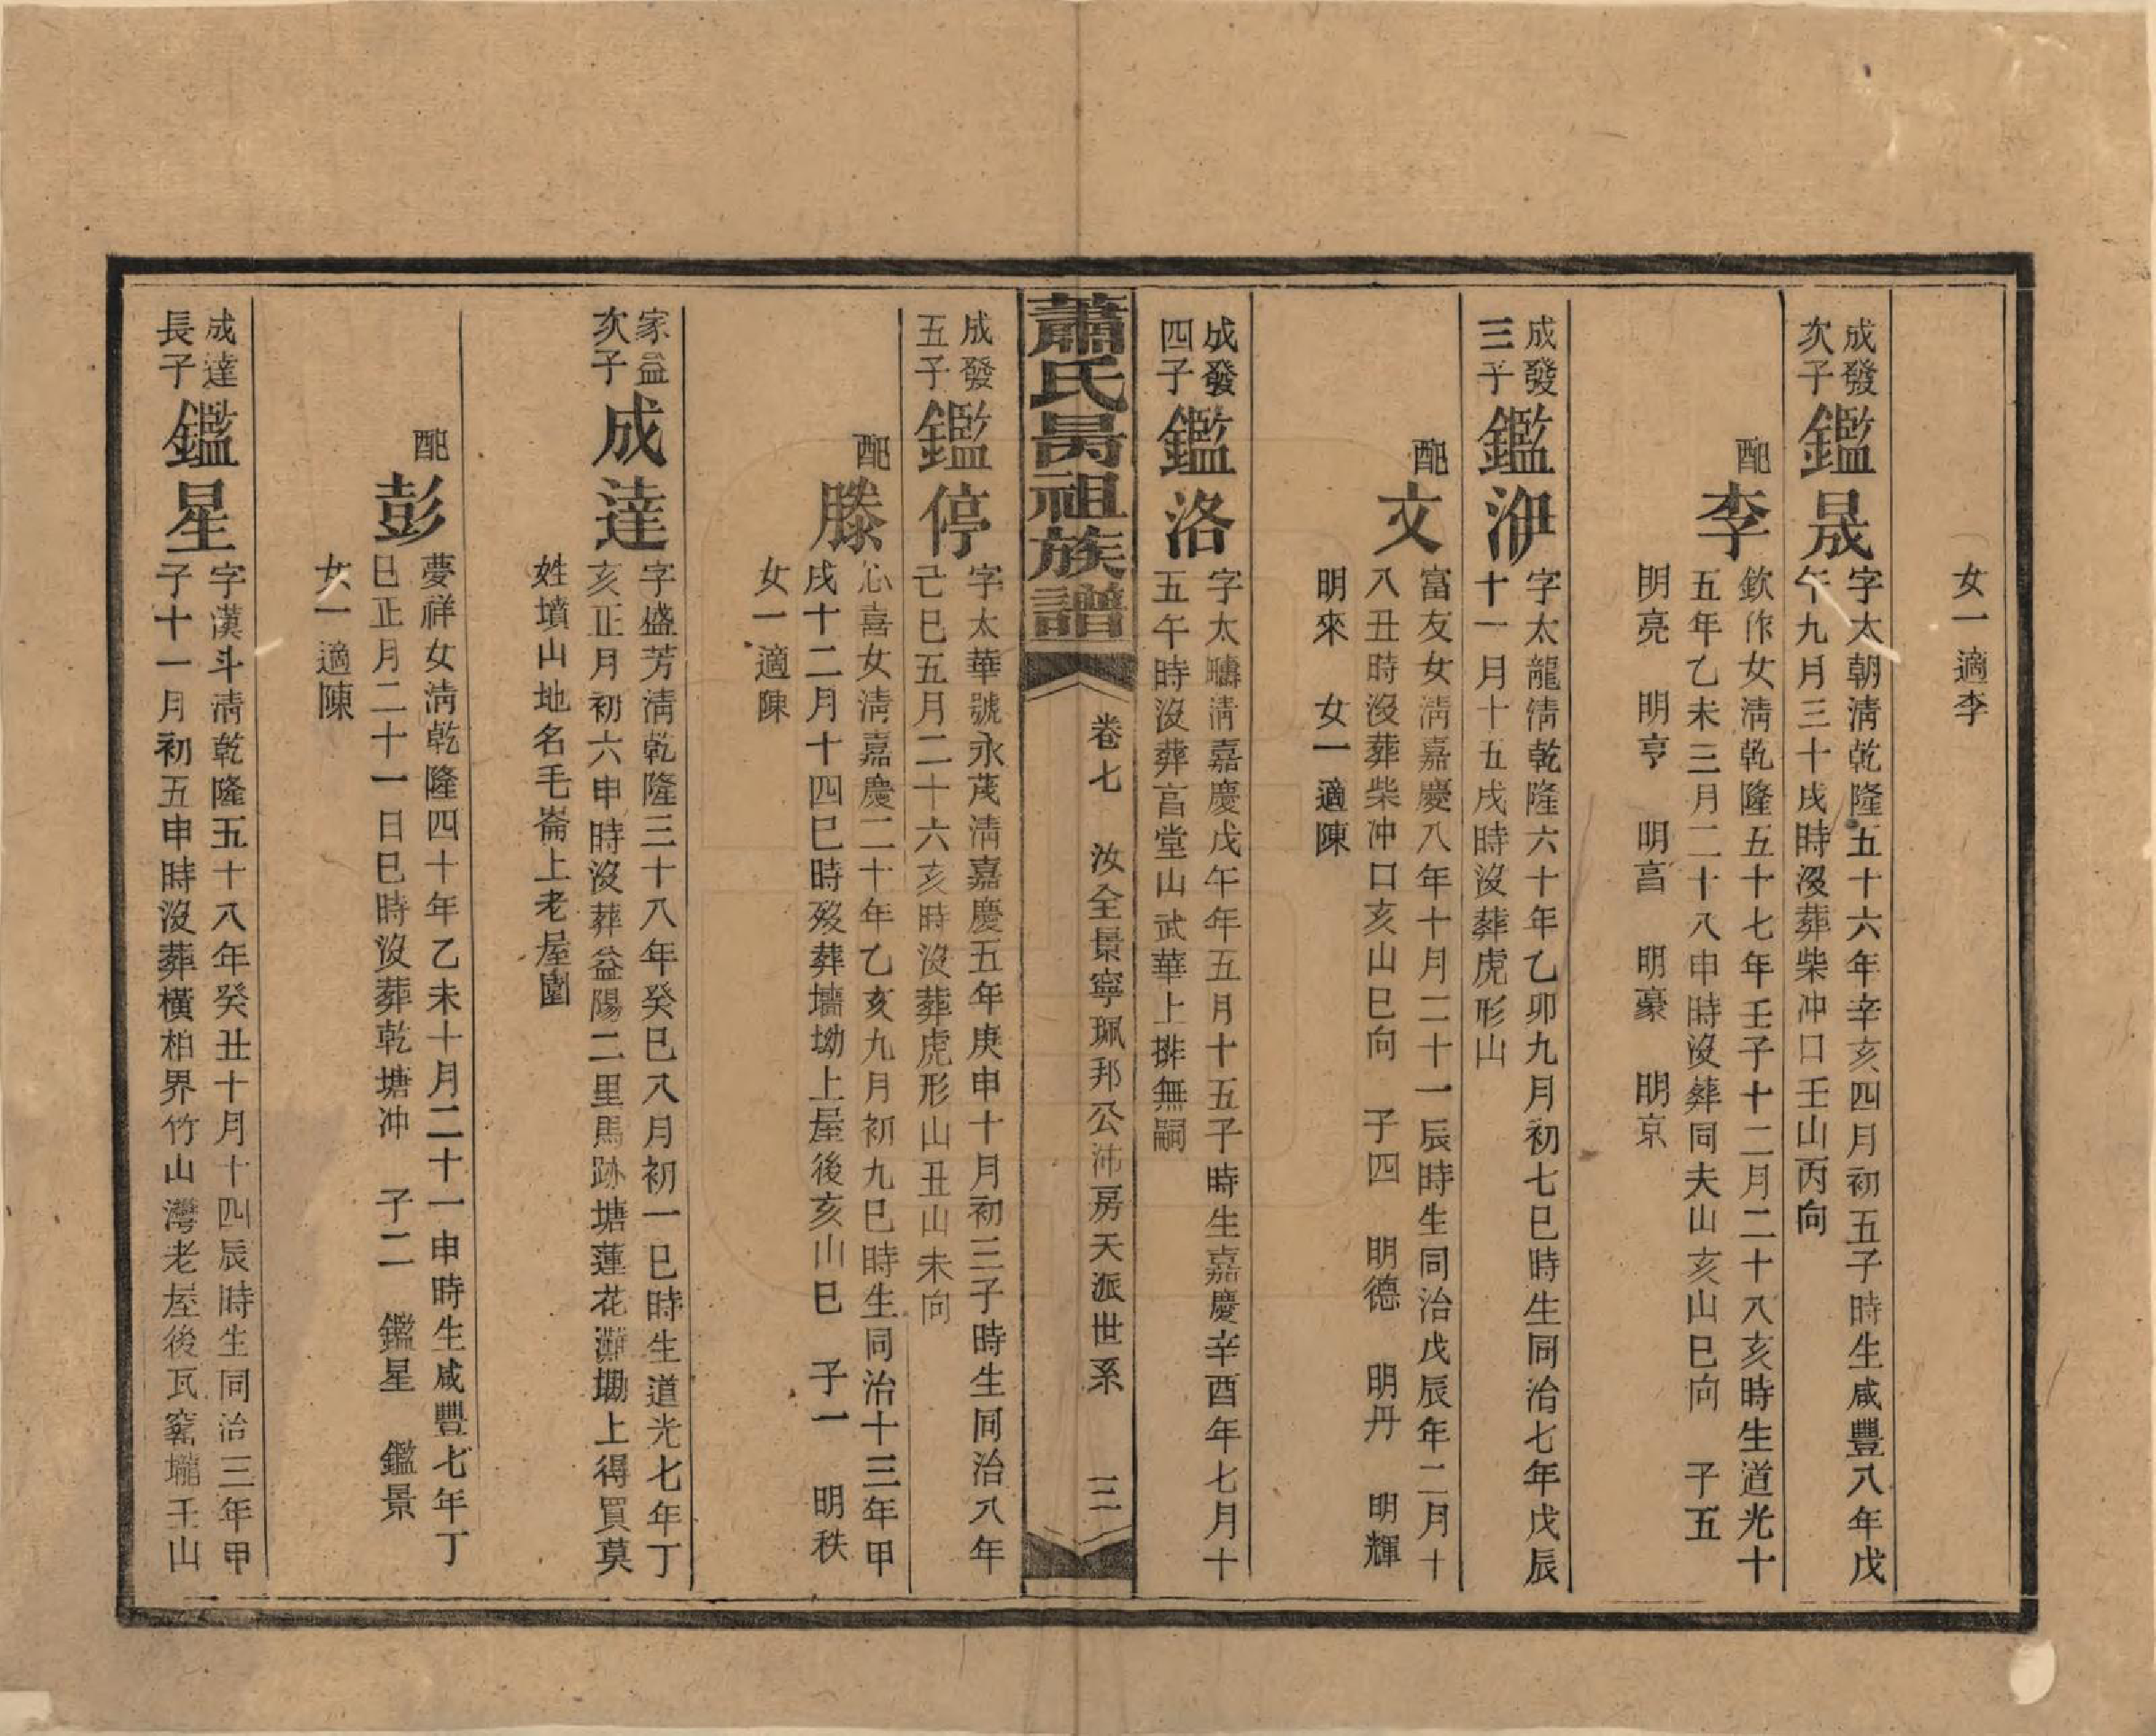 女一適李
成發
次子
鑑晟
字太朝淸乾隆五十六年辛亥四月初五子時生咸豐八年戊
午九月三十戌時沒葬柴冲口壬山丙向
配
李
欽作女淸乾隆五十七年壬子十二月二十八亥時生道光十
五年乙未三月二十八申時沒葬同夫山亥山巳向 子五
明亮 明亨 明亯 明豪 明京
成發
三子
鑑洢
字太龍淸乾隆六十年乙卯九月初七巳時生同治七年戊辰
十一月十五戌時沒葬虎形山
配
文
富友女淸嘉慶八年十月二十一辰時生同治戊辰年二月十
八丑時沒葬柴冲口亥山巳向 子四 明德 明丹 明輝
明來 女一適陳
成發
四子
鑑洛
字太疇淸嘉慶戊午年五月十五子時生嘉慶辛酉年七月十
五午時沒葬亯堂山武華上排無嗣
蕭氏昺祖族譜
卷七 汝全景寧珮邦公沛房天派世系 三
成發
五子
鑑停
字太華號永茂淸嘉慶五年庚申十月初三子時生同治八年
己巳五月二十六亥時沒葬虎形山丑山未向
配
滕
心喜女淸嘉慶二十年乙亥九月初九巳時生同治十三年甲
戌十二月十四巳時歿葬墻坳上屋後亥山巳 子一 明秩
女一適陳
家益
次子
成達
字盛芳淸乾隆三十八年癸巳八月初一巳時生道光七年丁
亥正月初六申時沒葬益陽二里馬跡塘蓮花灘坳上得買莫
姓墳山地名毛崙上老屋園
配
彭
夢祥女淸乾隆四十年乙未十月二十一申時生咸豐七年丁
巳正月二十一日巳時沒葬乾塘冲 子二 鑑星 鑑景
女一適陳
成達
長子
鑑星
字漢斗淸乾隆五十八年癸丑十月十四辰時生同治三年甲
子十一月初五申時沒葬橫柏界竹山灣老屋後瓦窰壠壬山